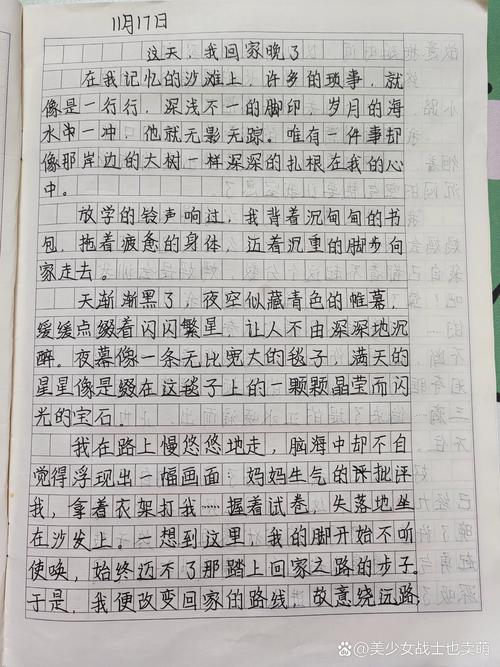 11月17日
这天，我回家晚了
在我记忆的沙滩上，许多的琐事，就
像是一行行，深浅不一的脚印，岁月的海
水冲一冲，他就无影无踪。唯有一件事却
像那岸边的大树一样深深的扎根在我的心
中。
放学的铃声响过，我背着沉甸甸的书
包，拖着疲惫的身体，迈着沉重的脚步向
家走去。
天渐渐黑了，夜空似藏青色的帷幕，
缓缓点缀着闪闪繁星，让人不由深深地沉
醉。夜幕像一条无比宽大的毯子，满天的
星星像是缀在这毯子上的一颗颗晶莹而闪
光的宝石。
我在路上慢悠悠地走，脑海中却不自
觉得浮现出一幅画面：妈妈生气的评批评
我，拿着衣架打我……握着试卷，失落地坐
在沙发上。一想到这里，我的脚开始不听
使唤，始终迈不了那踏上回家之路的步子。
于是，我便改变回家的路线，故意绕远路，
百度@美少女战士也卖萌